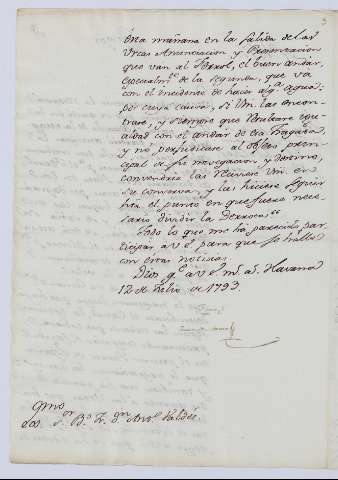 3
Esta mañana en la salida de las
Urcas Anunciacion y Presentacion
que van al Ferrol, el buen andar,
especialmte de la segunda, que va
con el incidente de hacer algª agua:
por cuya causa, si Um. las encon-
trase, y notase que tubiesen ygu-
aldad con el andar de esa Fragata,
y no perjudicase al objeto prin-
cipal de su navegacion y destino,
convendria las reciviese Um. en
su conserva, y las hiciese seguir
hta. el punto en que fuere nece-
sario dividir la Derrota.
Todo lo que me ha parecido par-
ticipar a V.E. para que se halle
con estas noticias.
Dios gue. a V.E. ms. as. Havana
12 de Julio de 1793.
Exmo
Sor. Bo. Fr. Dn. Anto. Valdés